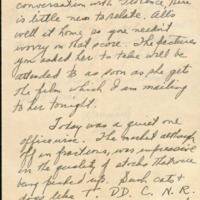 conversation with Florence, there
is little news to relate. All's
well at home so you needn't
worry on that score. The pictures
you asked her to take will be
attended to as soon as she gets
the film which I am mailing
to her tonight.
Today was a quiet one
officewise. The market although
off in fractions, was impressive
in the quality of stocks that were
being picked up. Such cats &
dogs like T. DD. C. N. R.